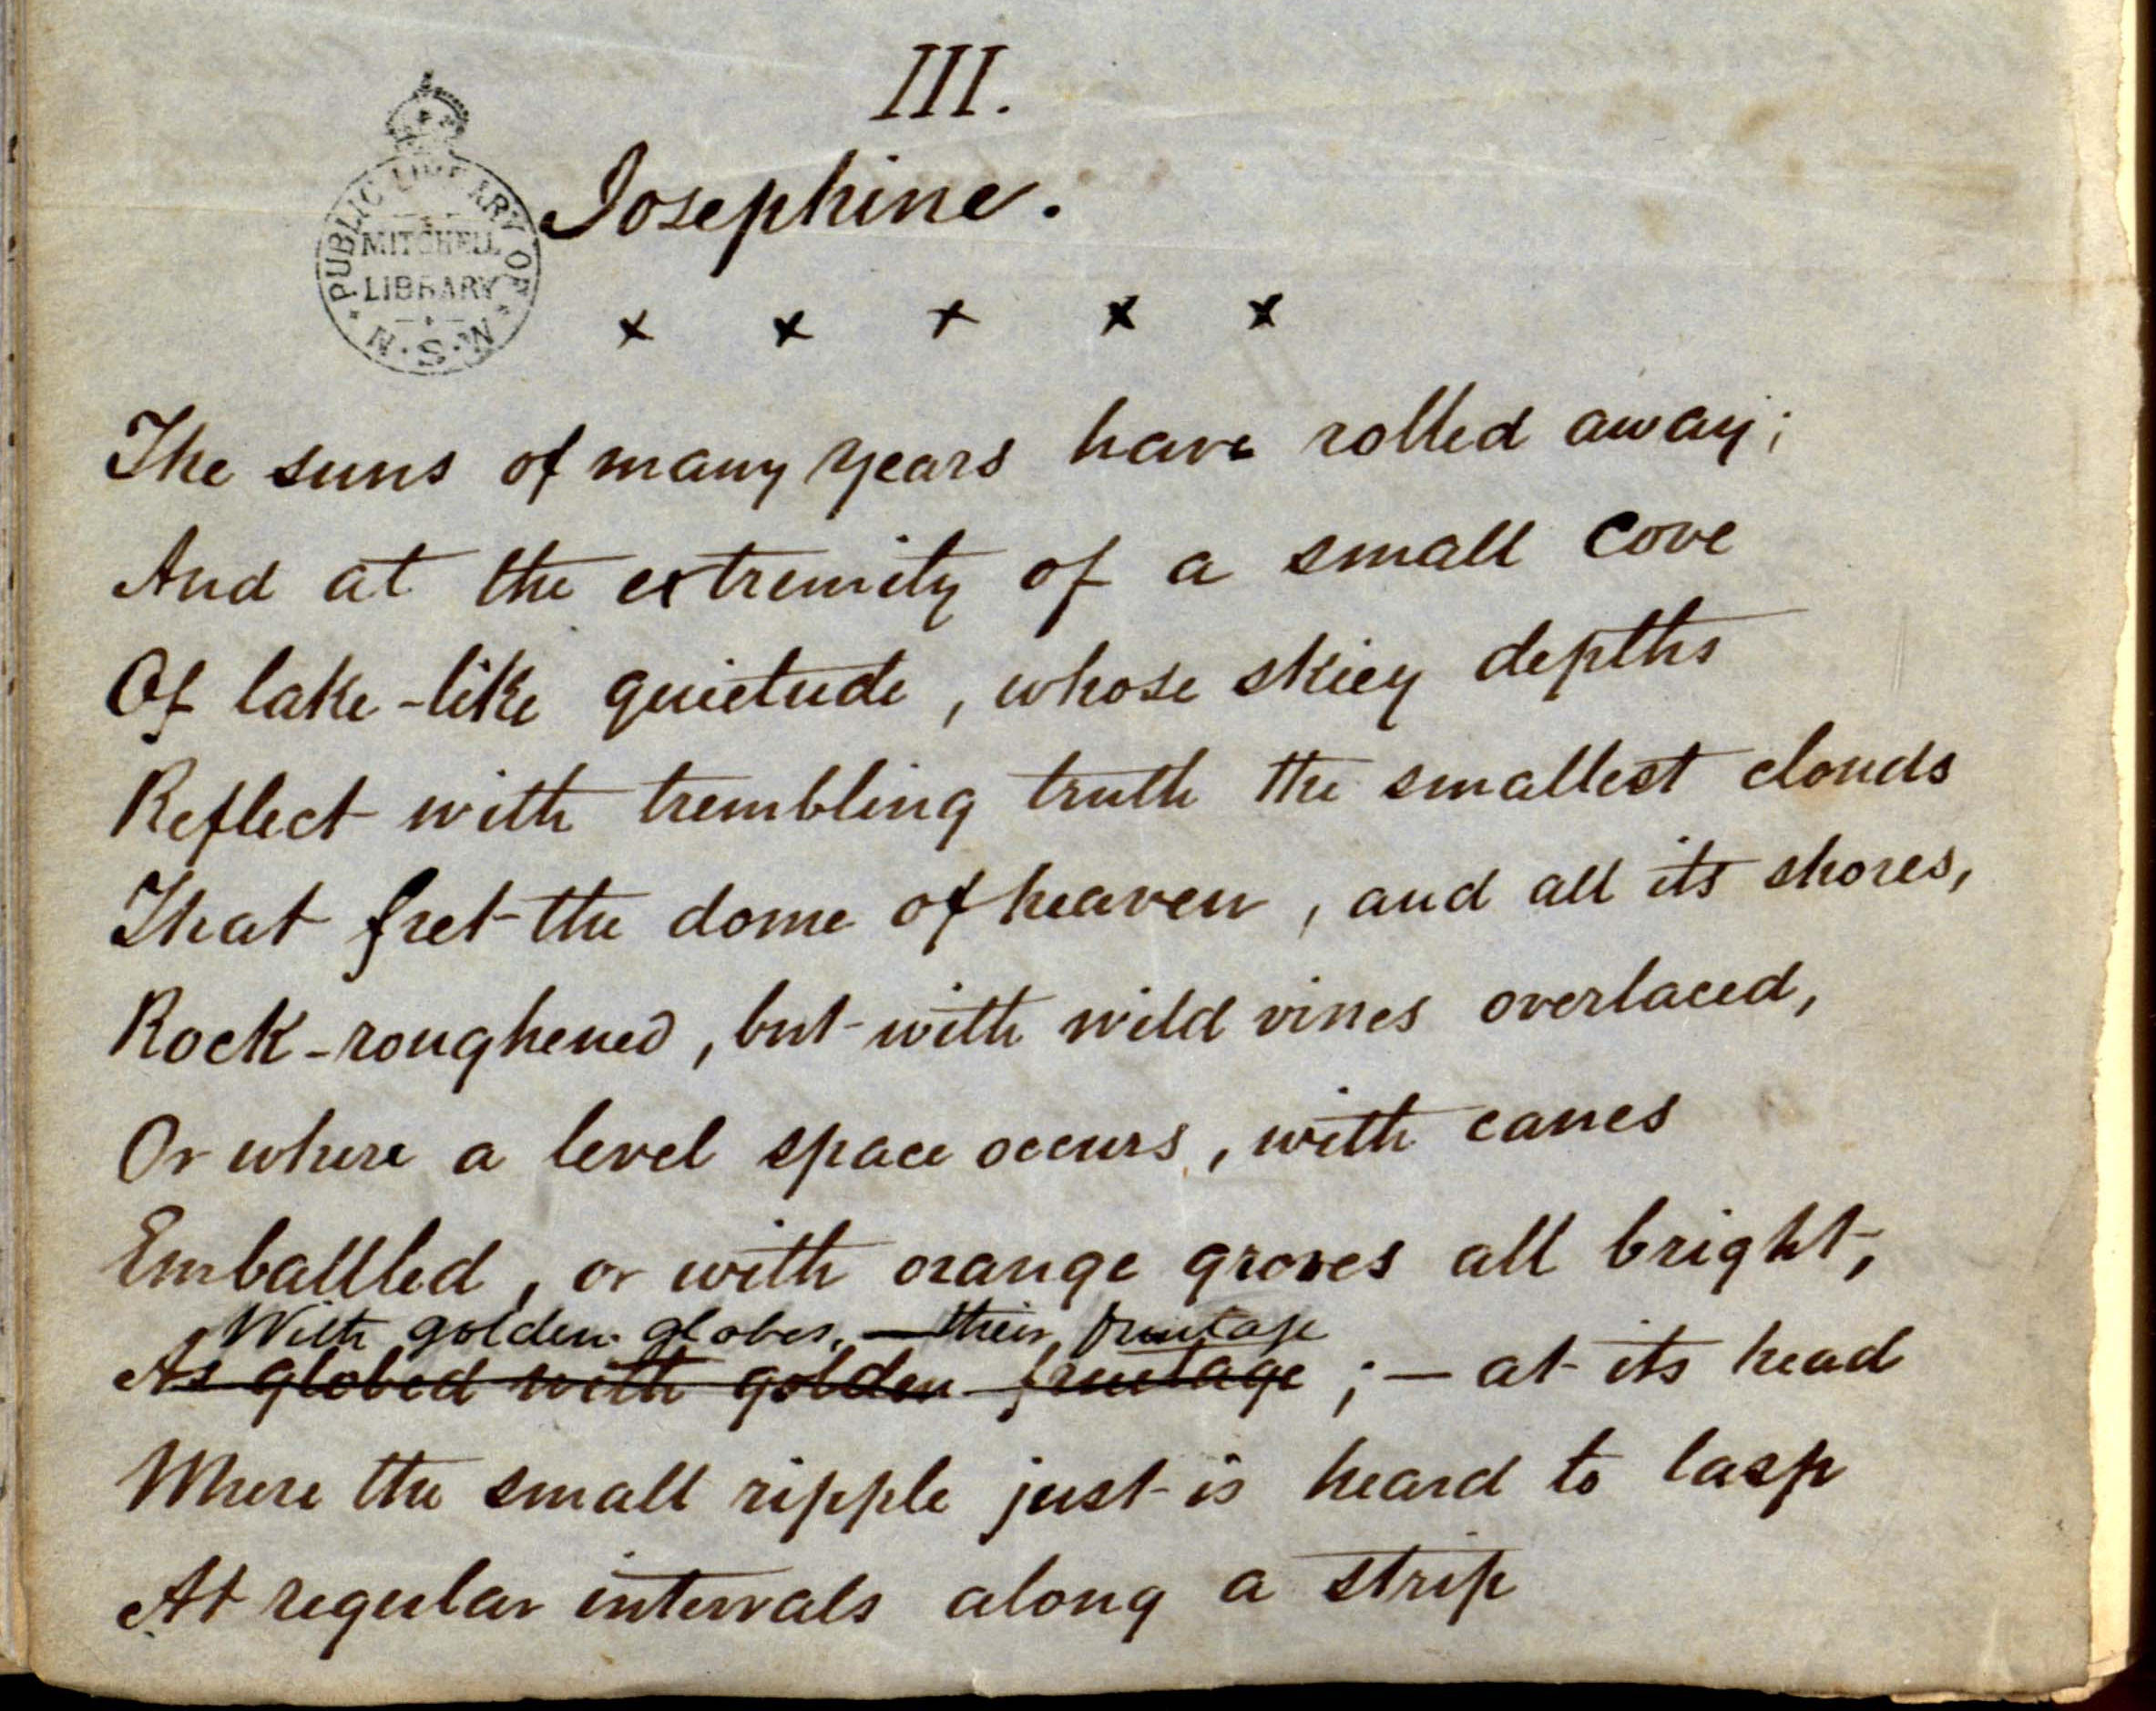 III.
PUBLIC LIBRARY OF
MITCHELL
LIBRARY
N.S.W
Josephine.
x x x x x
The suns of many years have rolled away;
And at the extremity of a small cove
Of lake-like quietude, whose skiey depths
Reflect with trembling truth the smallest clouds
That fret the dome of heaven, and all its shores,
Rock-roughened, but with wild vines overlaced,
Or where a level space occurs, with canes
Emballled, or with orange groves all bright,
With golden globes,—their fruitage
As globed with golden fruitage ;— at its head
Where the small ripple just is heard to lasp
At regular intervals along a strip